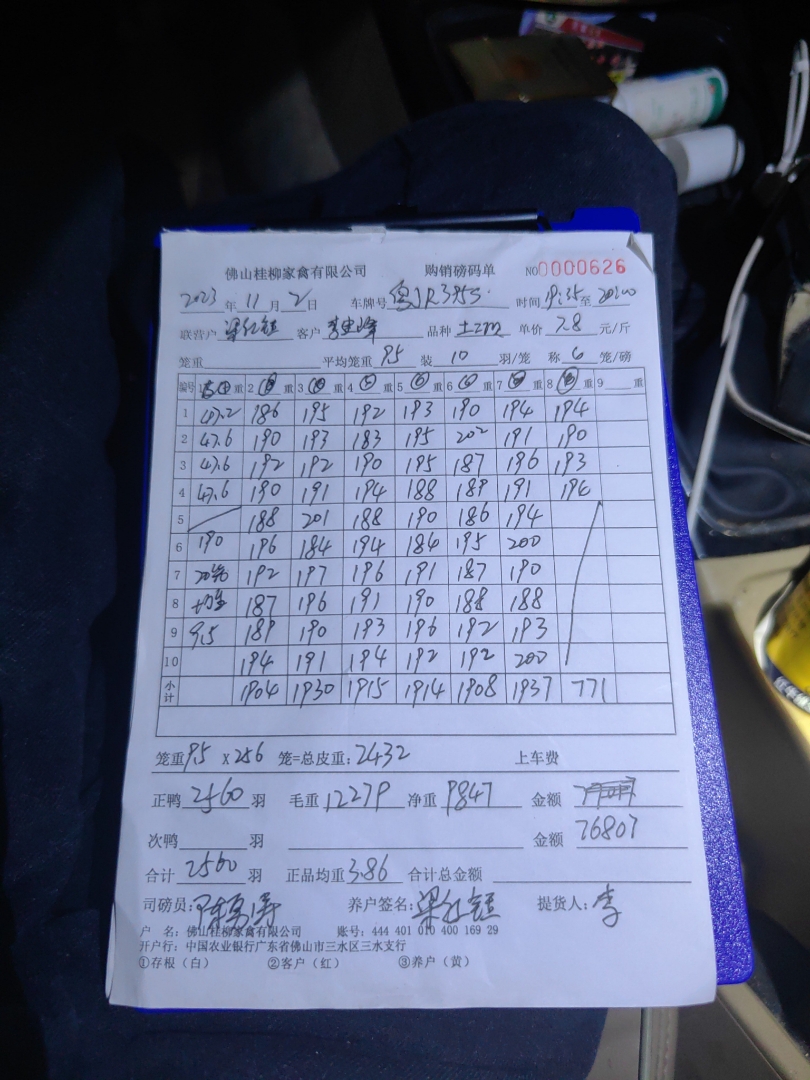 佛山桂柳家禽有限公司 购销磅码单 NO 0000626
2023年11月2日 车牌号 粤JR3955 时间 19:35至20:00
联营户 梁红 客户 李 峰 品种 单价 7.8 元/斤
笼重 平均笼重 9.5 装 10 羽/笼 称 6 笼/磅
编号 1 重 2 重 3 重 4 重 5 重 6 重 7 重 8 重 9 重
1 47.2 186 195 192 193 190 194 194
2 47.6 190 193 183 195 202 191 190
3 47.6 192 192 190 195 187 196 193
4 47.6 190 191 194 188 189 191 194
5 188 201 188 190 186 194
6 190 196 184 194 184 195 200
7 20笼 192 197 196 191 187 190
8 均重 187 196 191 190 188 188
9 9.5 189 190 193 196 192 193
10 194 191 194 192 192 200
小计 1904 1930 1915 1914 1908 1937 771
笼重 9.5 x 256 笼=总皮重: 2432 上车费
正鸭 2560 羽 毛重 12279 净重 9847 金额
次鸭 羽 金额 76807
合计 2560 羽 正品均重 3.86 合计总金额
司磅员: 陈 涛 养户签名: 梁红 提货人: 李
户 名: 佛山桂柳家禽有限公司 账号: 444 401 010 400 169 29
开户行: 中国农业银行广东省佛山市三水区三水支行
①存根(白) ②客户(红) ③养户(黄)